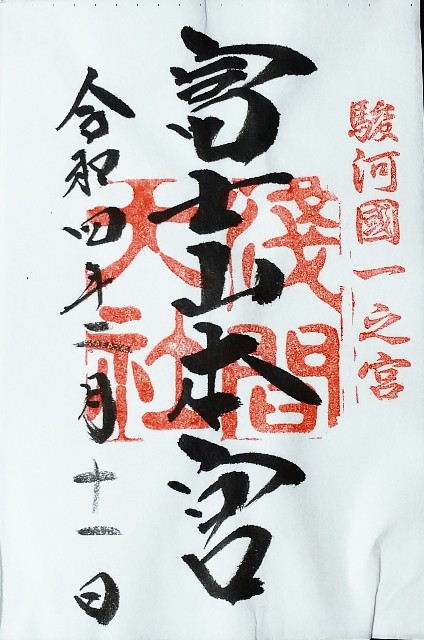 駿河國一之宮
富士山本宮
淺間大社
令和四年二月十一日